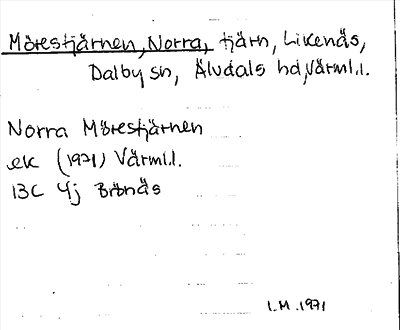 Mörestjärnen, Norra, tjärn, Likenäs,
Dalby sn, Älvdals hd, Värml.l.
Norra Mörestjärnen
ek (1971) Värml.l.
13C 4j Brönäs
I.M. 1971